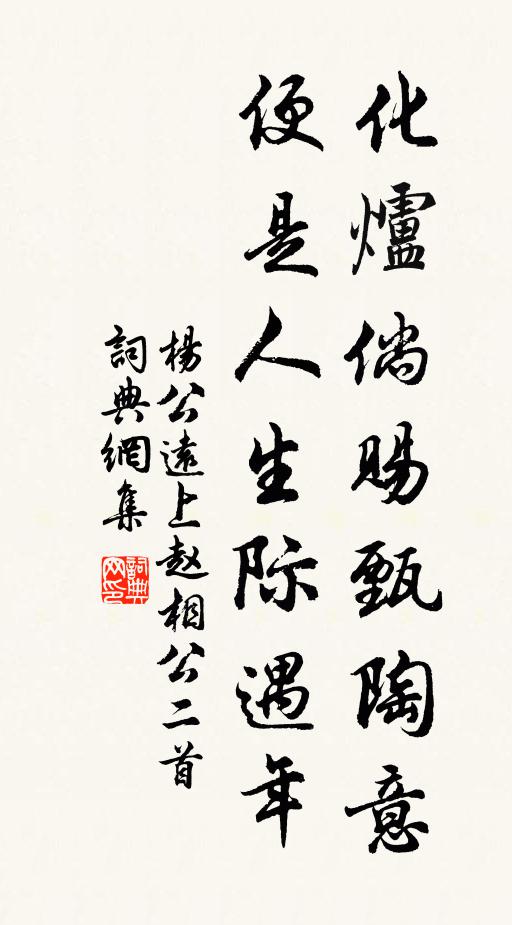 化爐倘賜甄陶意
便是人生际遇年
楊公遠上赵相公二首
詞典網集
詞典网印